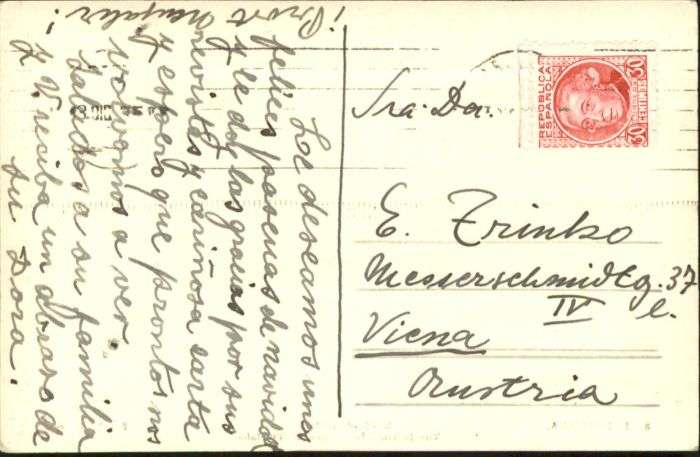 Le deseamos unes
felices pascuas de navidad
y le doy las gracias por sus
revistas y cariñosa carta
y espero que pronto nos
volvamos a ver.
Saludos a su familia
y V reciba un abrazo de
su Dora.
¡ Prost Neujahr!
Sra. Da.
E. Trinko
Messerschmidtg. 37
IV
Viena
Austria
REPÚBLICA
ESPAÑOLA
30 CENTIMOS 30
DIC